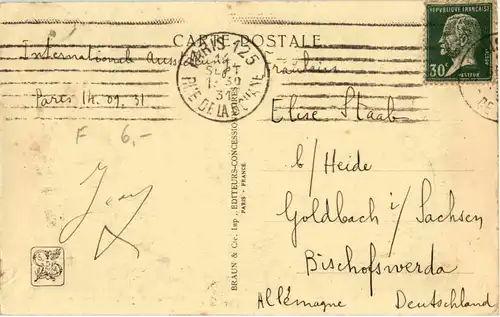 CARTE POSTALE
International Ausstellung
Paris 14.09.31
F 6,-
PARIS 125
SEPT
RÉPUBLIQUE FRANÇAISE
30
PASTEUR
Fräulein
Elise Staab
b/ Heide
Goldbach i/ Sachsen
Bischofswerda
Allémagne Deutschland
BRAUN & Cie Imp., EDITEURS-CONCESSIONNAIRES
PARIS - FRANCE